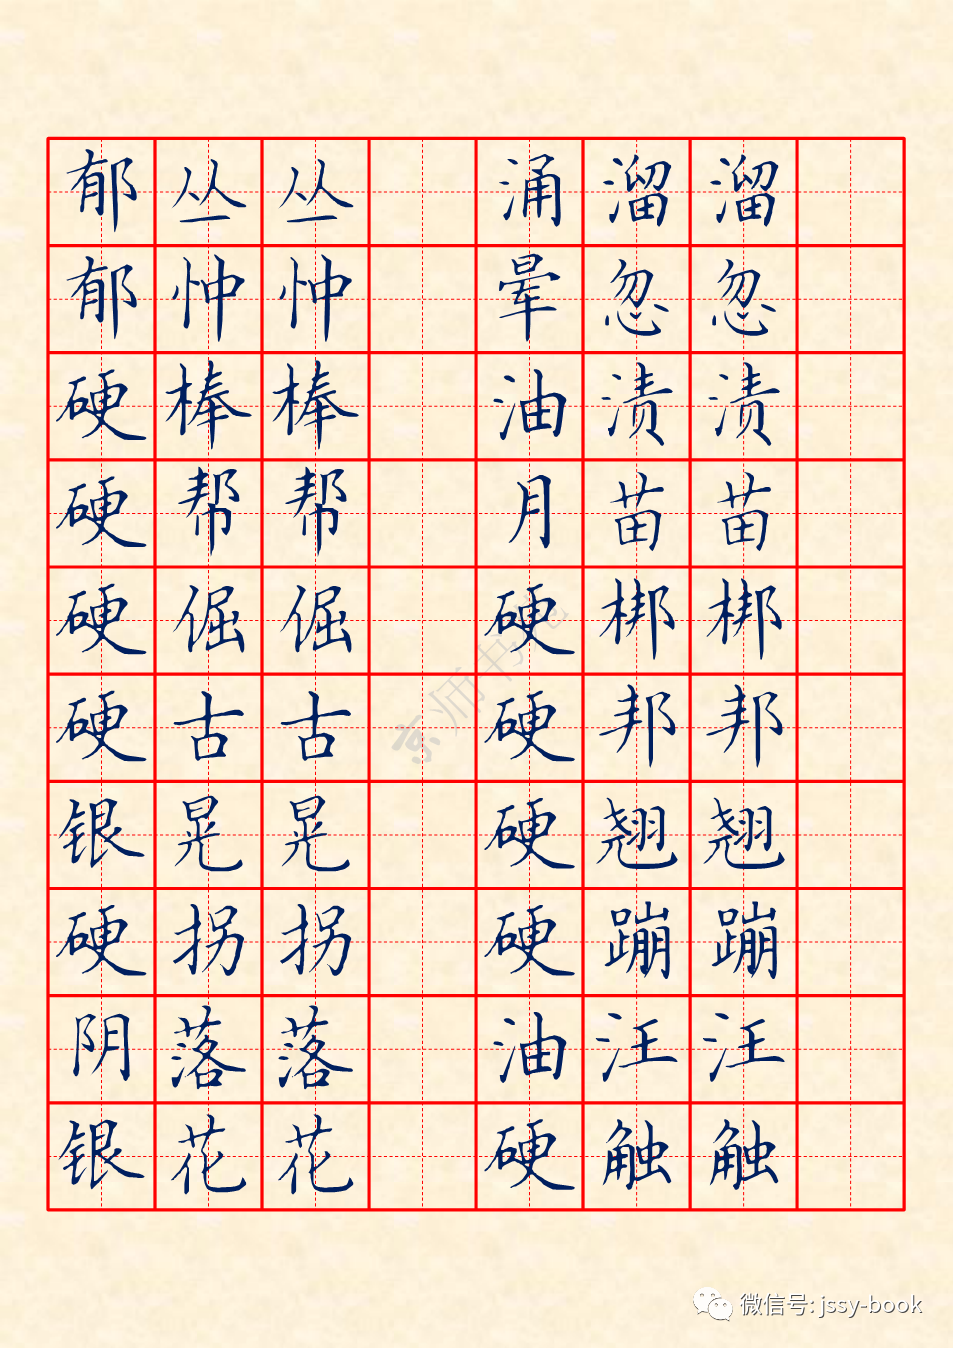 郁丛丛 涌溜溜
郁忡忡 晕忽忽
硬棒棒 油渍渍
硬帮帮 月苗苗
硬倔倔 硬梆梆
硬古古 硬邦邦
银晃晃 硬翘翘
硬拐拐 硬蹦蹦
阴落落 油汪汪
银花花 硬触触
京师书苑
微信号: jssy-book